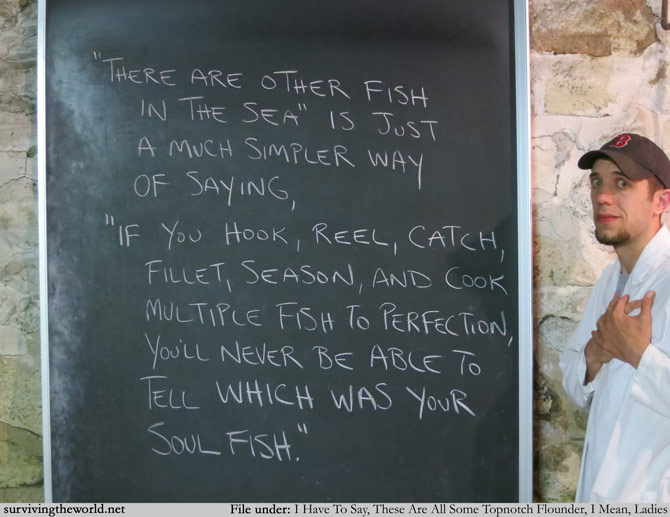 "THERE ARE OTHER FISH
IN THE SEA" IS JUST
A MUCH SIMPLER WAY
OF SAYING,
"IF YOU HOOK, REEL, CATCH,
FILLET, SEASON, AND COOK
MULTIPLE FISH TO PERFECTION,
YOU'LL NEVER BE ABLE TO
TELL WHICH WAS YOUR
SOUL FISH."
B
survivingtheworld.net File under: I Have To Say, These Are All Some Topnotch Flounder, I Mean, Ladies